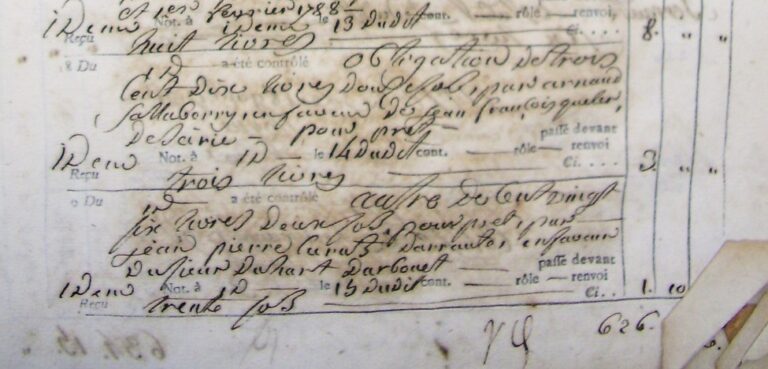 et 1er fevrier 1788
idem Not. à idem le 13 dudit cont. — rôle — renvoi,
Reçu huit livres Ci.... 8. " "
8 Du id — a été contrôlé obligation de trois
cent dix livres douze sols, par arnaud
sallaberry en faveur de jean françois
de — pour pret — passé devant
idem Not. à id — le 14 dudit cont. — rôle — renvoi
Reçu trois livres Ci.... 3. " "
9 Du id — a été contrôlé autre de cent vingt
six livres deux sols, pour pret, par
jean pierre en faveur
du sieur Duhart Darbouet — passé devant
idem Not. à id — le 15 dudit cont. — rôle — renvoi
Reçu trente sols Ci.. 1. 10
626.